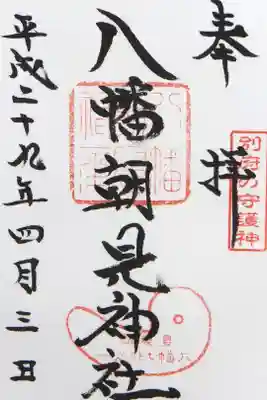 奉拝
別府の守護神
八幡朝見神社
平成二十九年四月三日